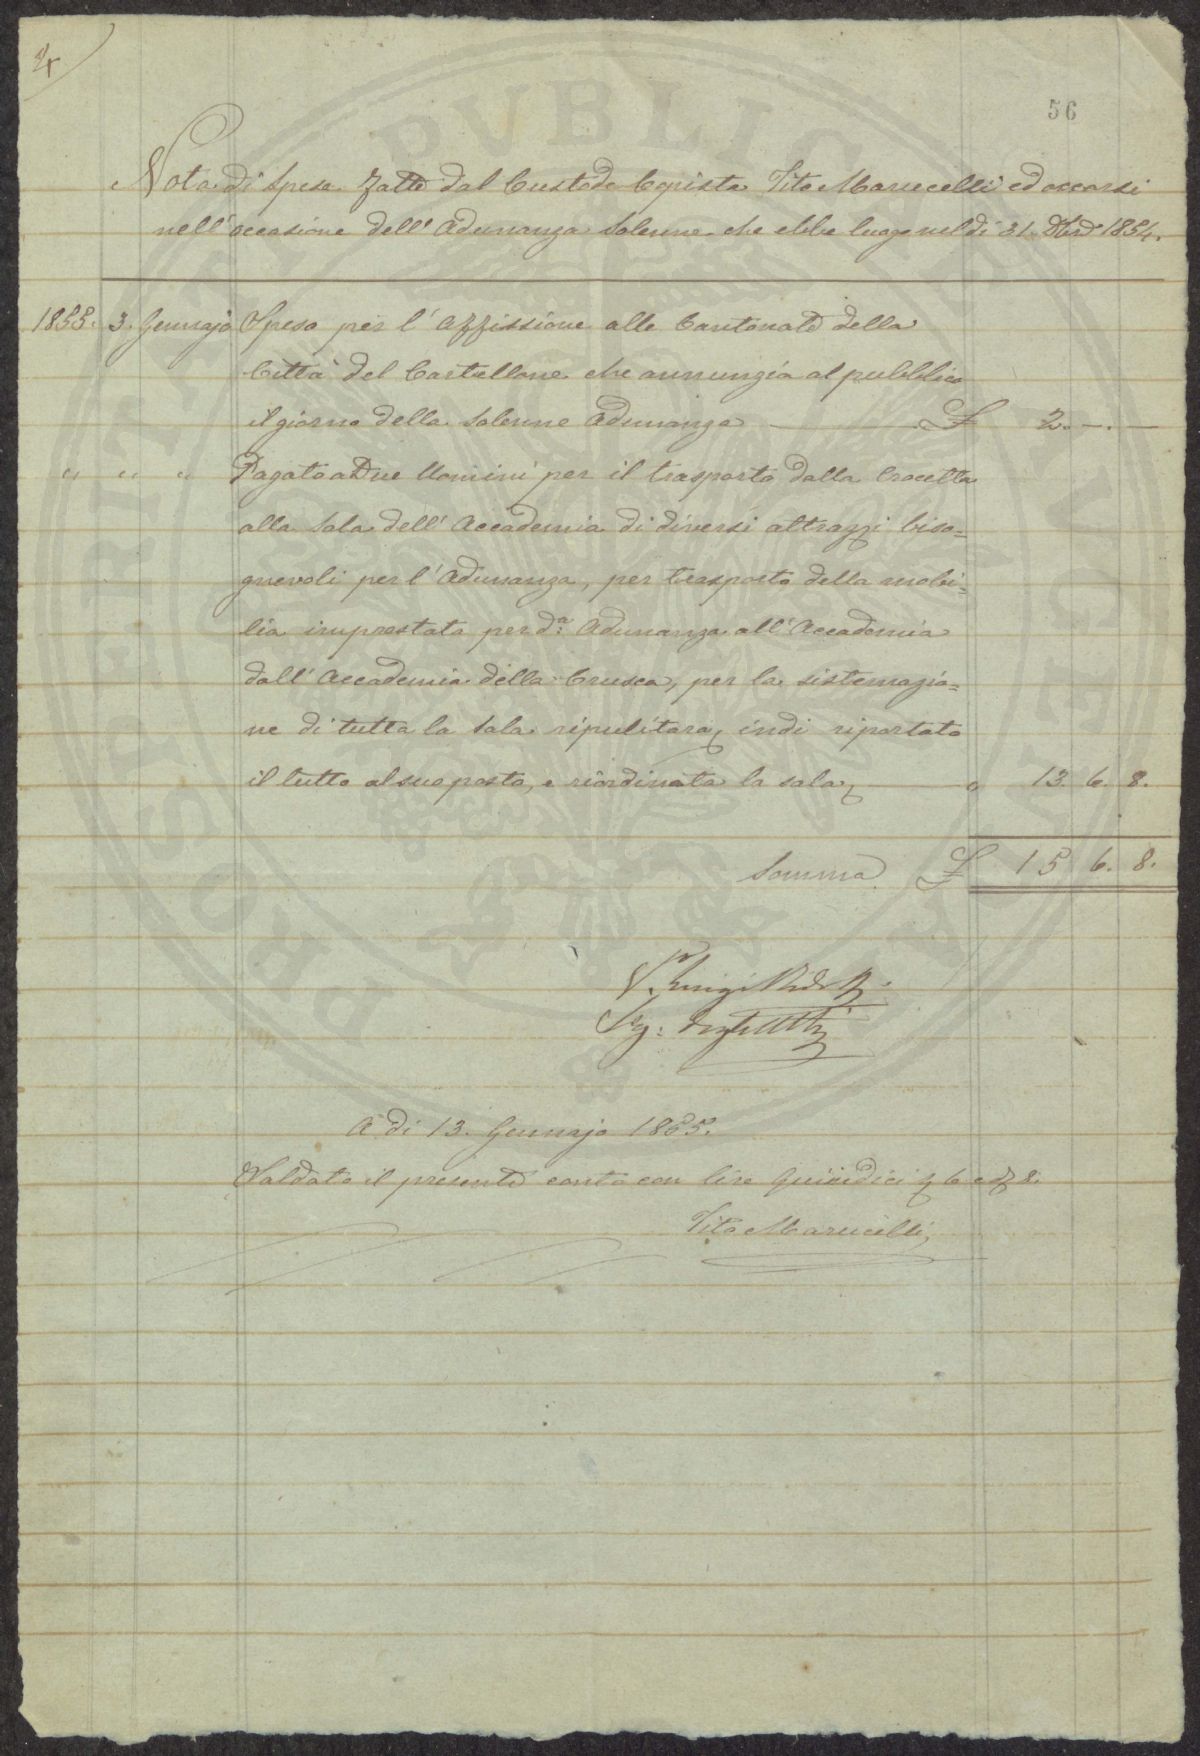 56
Nota di spese fatte dal Custode Copista Tito Marucelli ed occorsi
nell'occasione dell'Adunanza Solenne che ebbe luogo nel dì 31. 1854.
1855. 3. Gennajo Spesa per l'Affissione alle Cantonate della
Città del Cartellone che annunzia al pubblico
il giorno della Solenne Adunanza £ 2. -. -
" " " Pagato a Due Uomini per il trasporto dalla Crocetta
alla Sala dell'Accademia di diversi attrazzi biso=
gnevoli per l'Adunanza, per trasporto della mobi=
lia imprestata per d.a Adunanza all'Accademia
dall'Accademia della Crusca, per la sistemazio=
ne di tutta la Sala ripulitara, indi riportato
il tutto al suo posto, e riordinata la sala, " 13. 6. 8.
Somma £ 15 6. 8.
V. Luigi
Seg:
A dì 13. Gennajo 1855.
Saldato il presente conto con lire Quindici 6 e 8.
Tito Marucelli
PUBLICAE